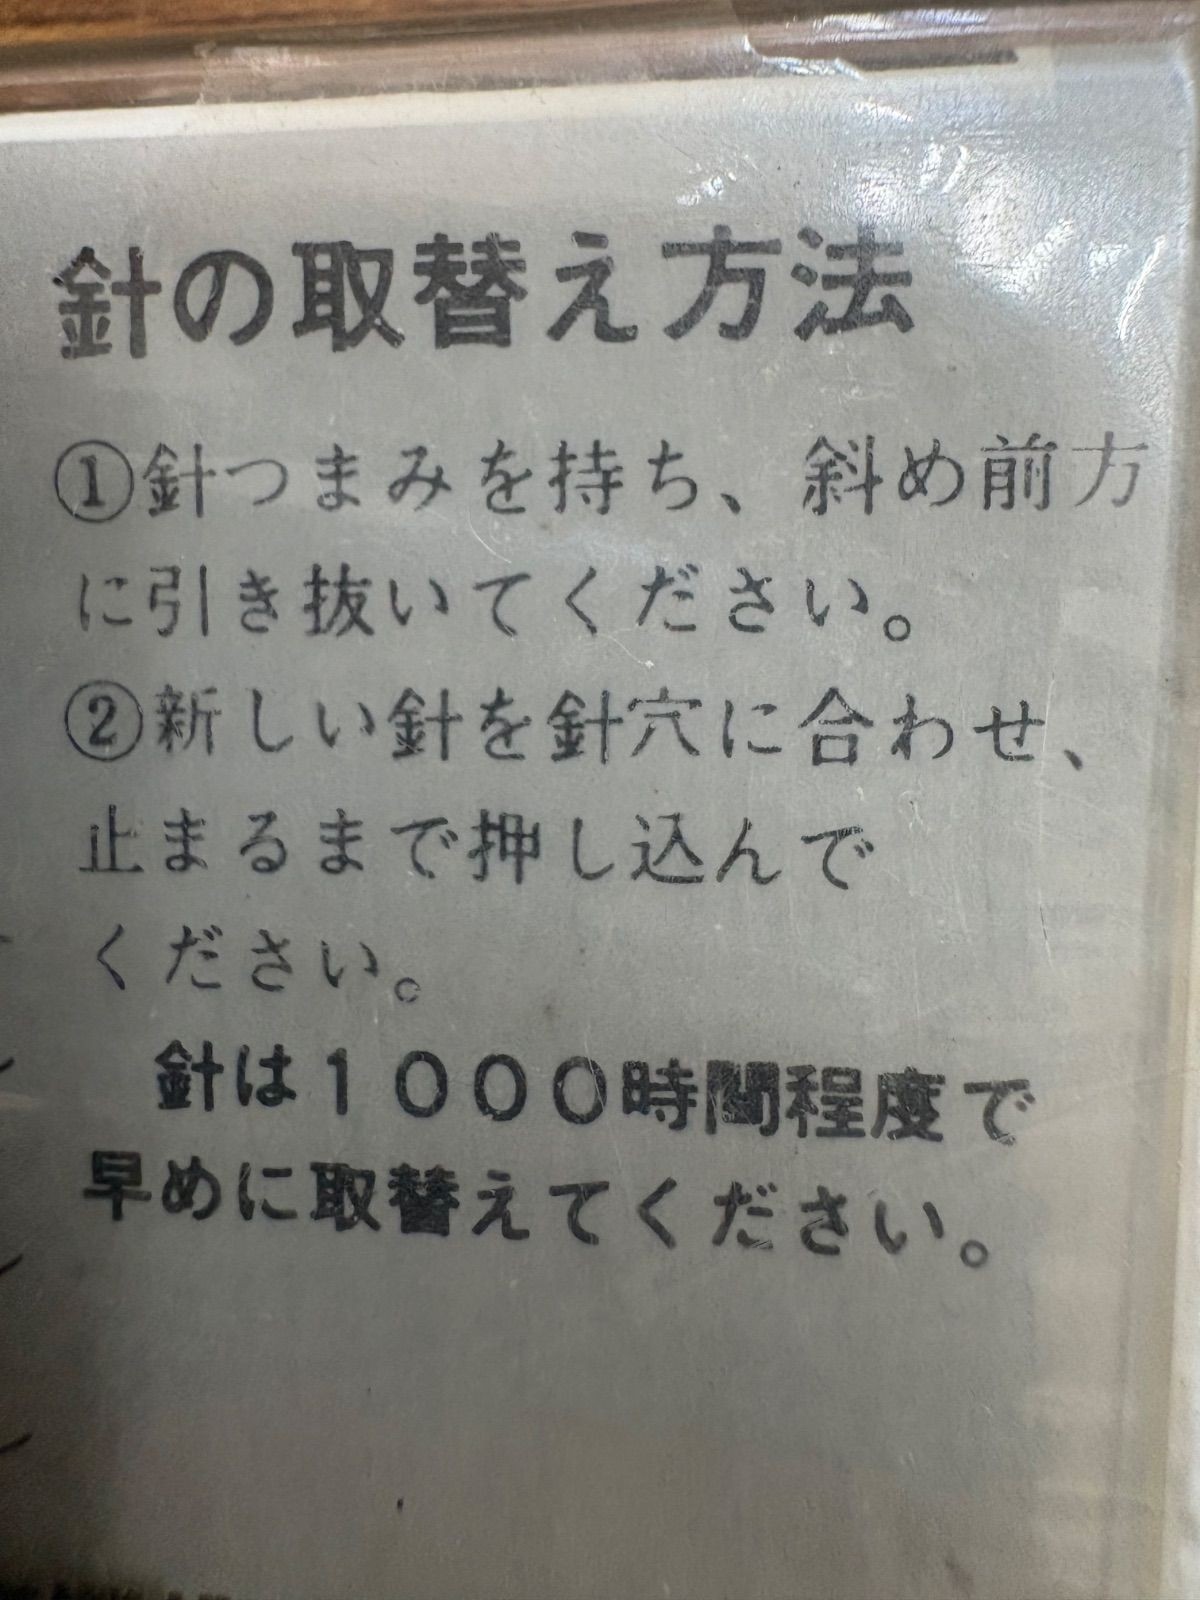 針の取替え方法
①針つまみを持ち、斜め前方
に引き抜いてください。
②新しい針を針穴に合わせ、
止まるまで押し込んで
ください。
針は１０００時間程度で
早めに取替えてください。